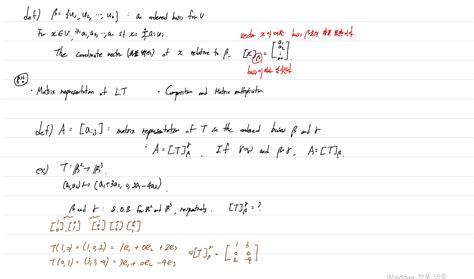 def) β = {u₁, u₂, ⋯, uₙ} : an ordered basis for V
For x ∈ V, ∃! a₁, a₂, ⋯, aₙ s.t x = Σ aᵢuᵢ
The coordinate vector of x relative to β, [x]_β = [a₁ a₂ ⋮ aₙ]
• Matrix representation of LT • Composition and Matrix multiplication
def) A = [aᵢⱼ] : matrix representation of T in the ordered bases β and γ
: A = [T]_β^γ , If V=W and β=γ, A = [T]_β
ex) T : ℝ² → ℝ³
(a₁, a₂) ↦ (a₁+3a₂, 0, 2a₁-4a₂)
β and γ : S.O.B for ℝ² and ℝ³, respectively. [T]_β^γ = ?
T(1,0) = (1,0,2) = 1e₁ + 0e₂ + 2e₃
T(0,1) = (3,0,-4) = 3e₁ + 0e₂ - 4e₃ ⇒ [T]_β^γ = [1 3; 0 0; 2 -4]